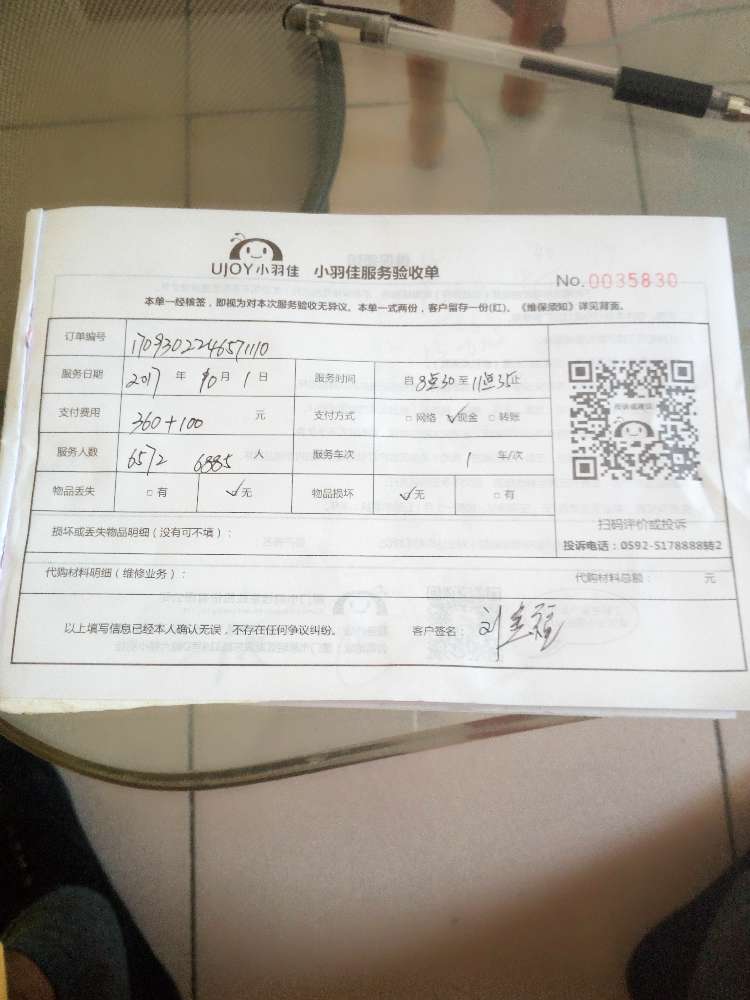 UJOY小羽佳 小羽佳服务验收单
No.0035830
本单一经核签，即视为对本次服务验收无异议。本单一式两份，客户留存一份(红)。《维保须知》详见背面。
订单编号 1709302246571110
服务日期 2017 年 10 月 1 日 服务时间 自 8点30 至 11点35 止
支付费用 360+100 元 支付方式 □ 网络 ✓现金 □ 转账
服务人数 6572 6885 人 服务车次 1 车/次
物品丢失 □ 有 ✓无 物品损坏 ✓无 □ 有
扫码评价或投诉
损坏或丢失物品明细（没有可不填）：
投诉电话：0592-5178888转2
代购材料明细（维修业务）： 代购材料总额： 元
以上填写信息已经本人确认无误，不存在任何争议纠纷。 客户签名： 刘